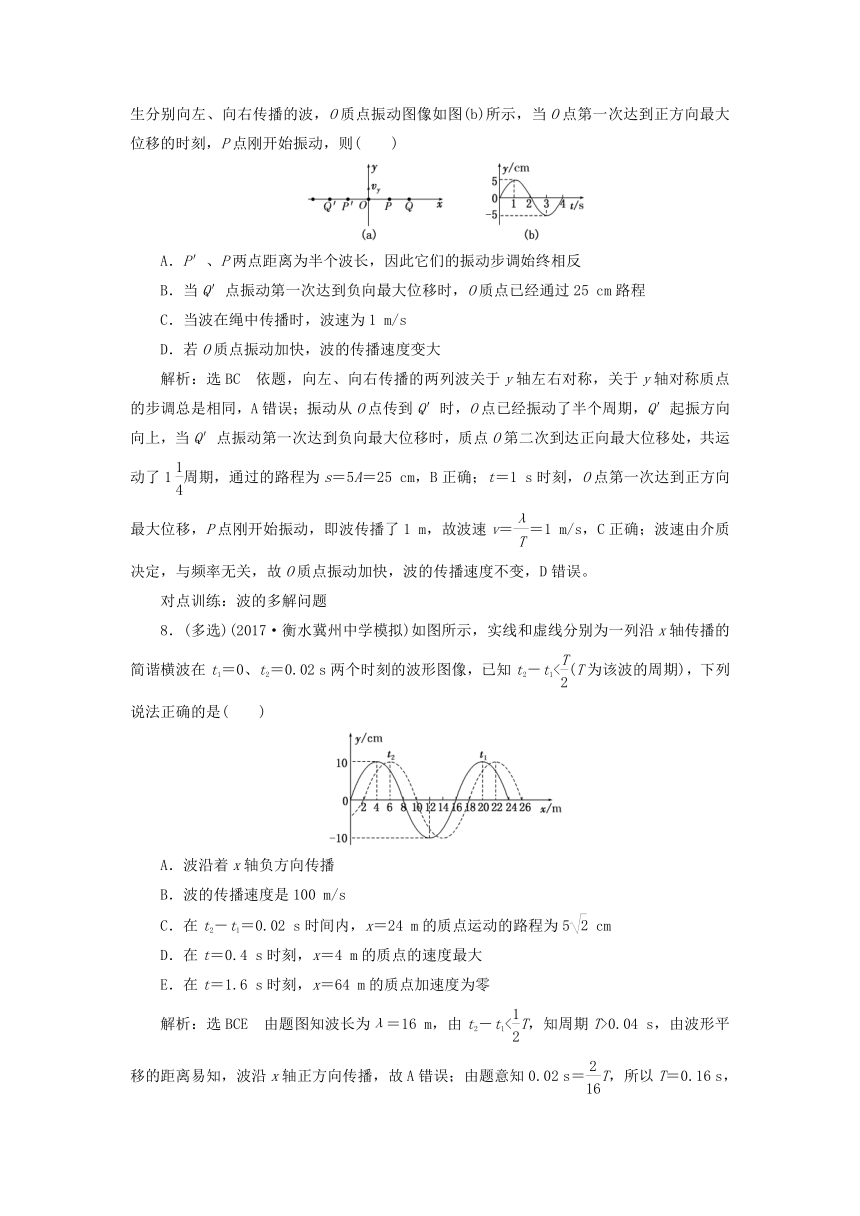 生分别向左、向右传播的波，O质点振动图像如图(b)所示，当O点第一次达到正方向最大
位移的时刻，P点刚开始振动，则(　　)
y
v_y
Q′ P′ O P Q x
(a)
y/cm
5
0 1 2 3 4 t/s
−5
(b)
A．P′、P两点距离为半个波长，因此它们的振动步调始终相反
B．当Q′点振动第一次达到负向最大位移时，O质点已经通过25 cm路程
C．当波在绳中传播时，波速为1 m/s
D．若O质点振动加快，波的传播速度变大
解析：选BC　依题，向左、向右传播的两列波关于y轴左右对称，关于y轴对称质点
的步调总是相同，A错误；振动从O点传到Q′时，O点已经振动了半个周期，Q′起振方向
向上，当Q′点振动第一次达到负向最大位移时，质点O第二次到达正向最大位移处，共运
动了1 1/4 周期，通过的路程为s＝5A＝25 cm，B正确；t＝1 s时刻，O点第一次达到正方向
最大位移，P点刚开始振动，即波传播了1 m，故波速v＝λ/T＝1 m/s，C正确；波速由介质
决定，与频率无关，故O质点振动加快，波的传播速度不变，D错误。
对点训练：波的多解问题
8．(多选)(2017·衡水冀州中学模拟)如图所示，实线和虚线分别为一列沿x轴传播的
简谐横波在t₁＝0、t₂＝0.02 s两个时刻的波形图像，已知t₂－t₁<T/2(T为该波的周期)，下列
说法正确的是(　　)
y/cm
t₂ t₁
10
0 2 4 6 8 10 12 14 16 18 20 22 24 26 x/m
−10
A．波沿着x轴负方向传播
B．波的传播速度是100 m/s
C．在t₂－t₁＝0.02 s时间内，x＝24 m的质点运动的路程为5√2 cm
D．在t＝0.4 s时刻，x＝4 m的质点的速度最大
E．在t＝1.6 s时刻，x＝64 m的质点加速度为零
解析：选BCE　由题图知波长为λ＝16 m，由t₂－t₁<1/2T，知周期T>0.04 s，由波形平
移的距离易知，波沿x轴正方向传播，故A错误；由题意知0.02 s＝2/16T，所以T＝0.16 s，